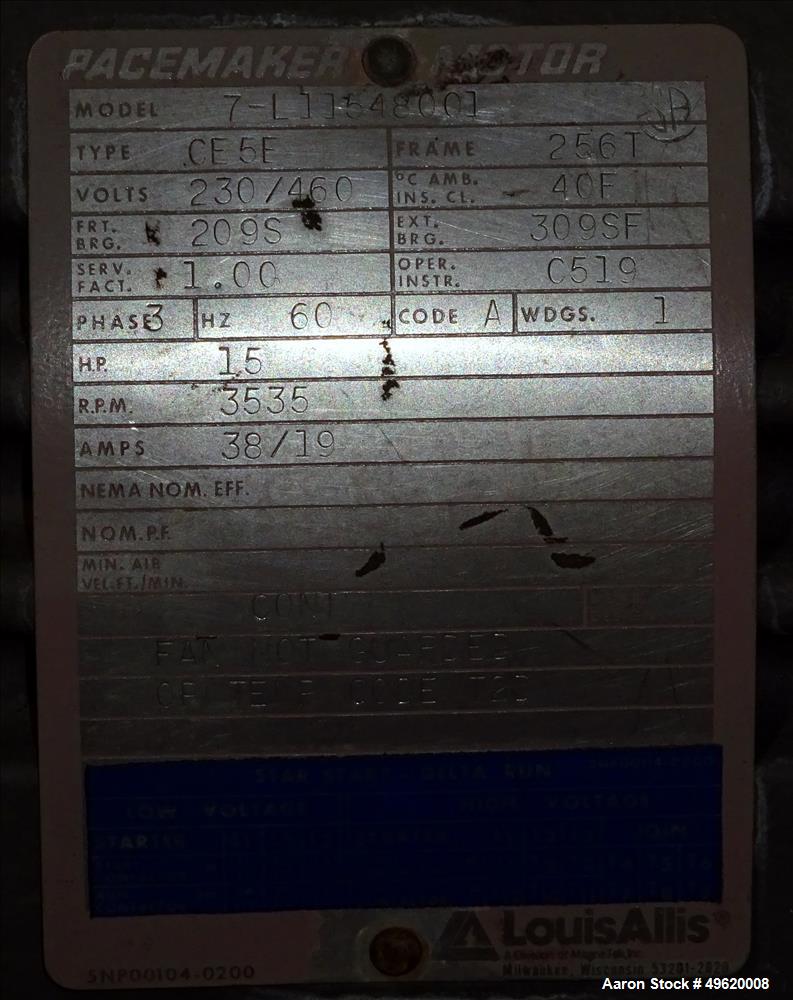 PACEMAKER MOTOR
MODEL 7-L11548001
TYPE CE5E FRAME 256T
VOLTS 230/460 °C AMB. INS. CL. 40F
FRT. BRG. 209S EXT. BRG. 309SF
SERV. FACT. 1.00 OPER. INSTR. C519
PHASE 3 HZ 60 CODE A WDGS. 1
H.P. 15
R.P.M. 3535
AMPS 38/19
NEMA NOM. EFF.
NOM. P.F.
MIN. AIR VEL. FT./MIN.
CONT
FAN NOT GUARDED
OP TEMP CODE T2D
STAR START - DELTA RUN
LOW VOLTAGE HIGH VOLTAGE
STARTER JOIN
LouisAllis®
A Division of MagneTek, Inc.
Milwaukee, Wisconsin 53201-2020
SNP00104-0200
Aaron Stock # 49620008